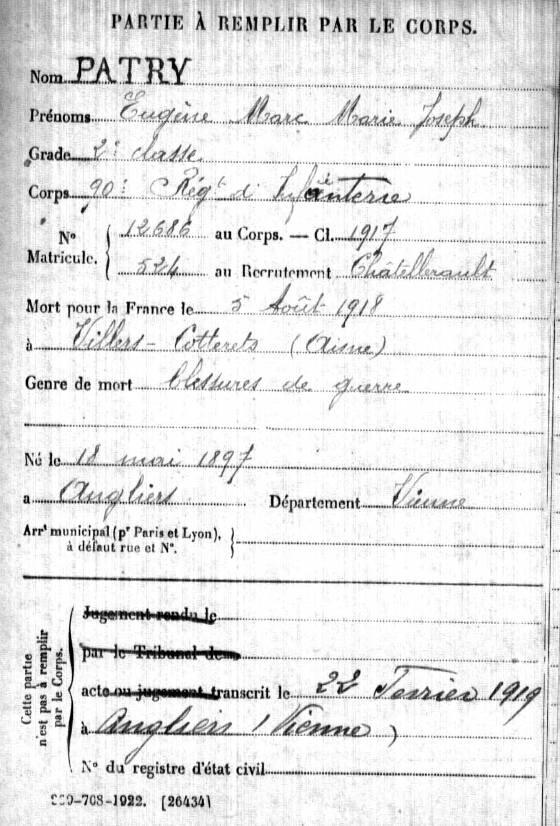 PARTIE À REMPLIR PAR LE CORPS.
Nom PATRY
Prénoms Eugène Marc Marie Joseph
Grade 2e classe
Corps 90e Régt d'Infanterie
N° Matricule. { 12686 au Corps. — Cl. 1917
524 au Recrutement Châtellerault
Mort pour la France le 5 Août 1918
à Villers-Cotterets (Aisne)
Genre de mort blessures de guerre
Né le 18 mai 1897
à Angliers Département Vienne
Arrt municipal (pr Paris et Lyon),
à défaut rue et N°.
Cette partie n'est pas à remplir par le Corps.
Jugement rendu le
par le Tribunal de
acte ou jugement transcrit le 22 Fevrier 1919
à Angliers (Vienne)
N° du registre d'état civil
-708-1922. [26434]